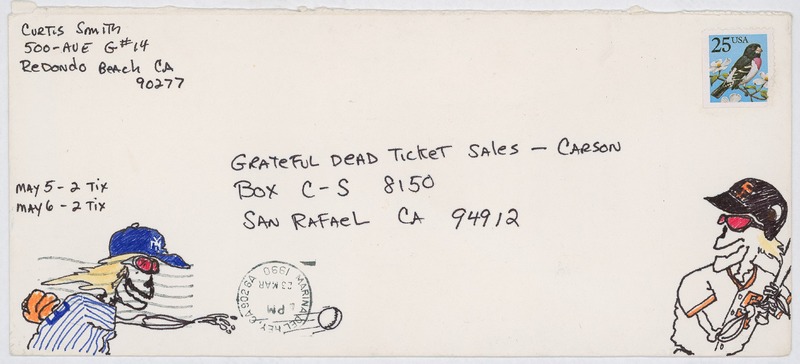 Curtis Smith
500-AVE G #14
Redondo Beach CA
90277
25 USA
Grateful Dead Ticket Sales - Carson
Box C-S 8150
San Rafael CA 94912
May 5 - 2 Tix
May 6 - 2 Tix
NY
MARINA DEL REY, CA 90296A
23 MAR
PM
1990